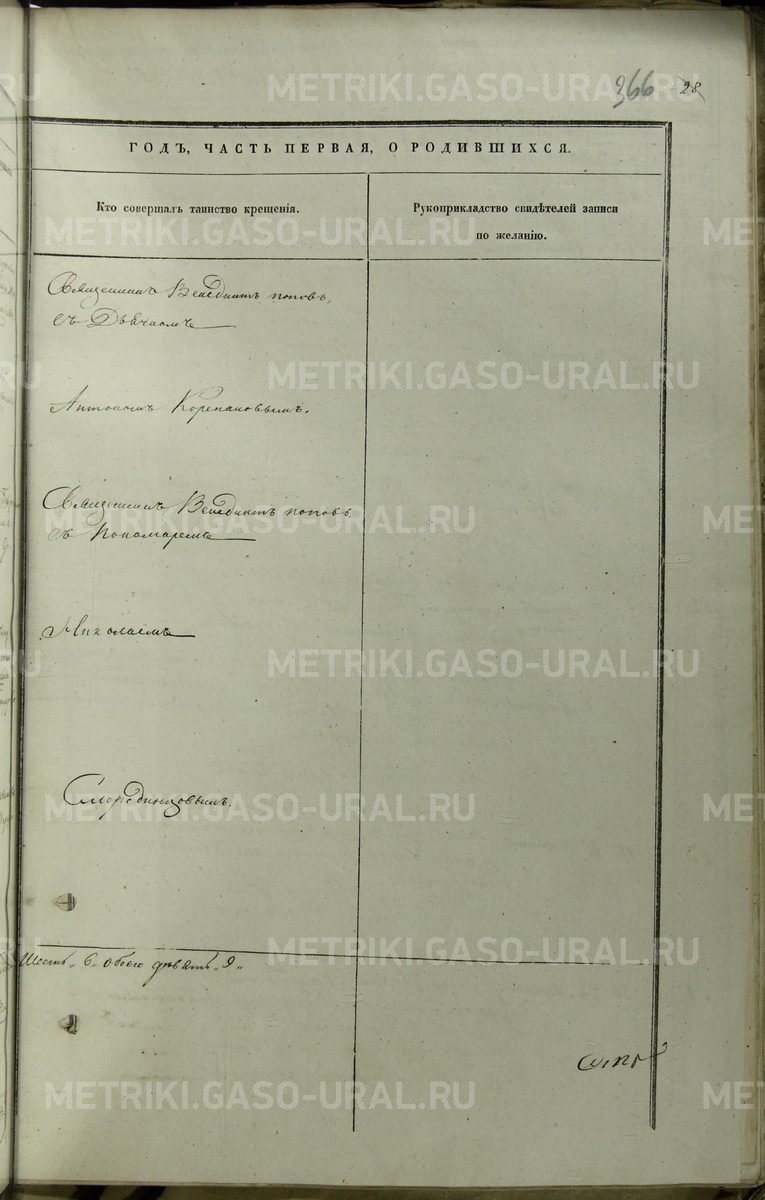 366 28
ГОДЪ, ЧАСТЬ ПЕРВАЯ, О РОДИВШИХСЯ.
Кто совершалъ таинство крещенія.
Рукоприкладство свидѣтелей записи
по желанію.
Священникъ Венедиктъ Поповъ,
съ Дьячкомъ
Антономъ Корепановымъ.
Священникъ Венедиктъ Поповъ
съ Пономаремъ
Николаемъ
Смородинцовымъ.
Шесть „6„ обоего девять „9„
METRIKI.GASO-URAL.RU